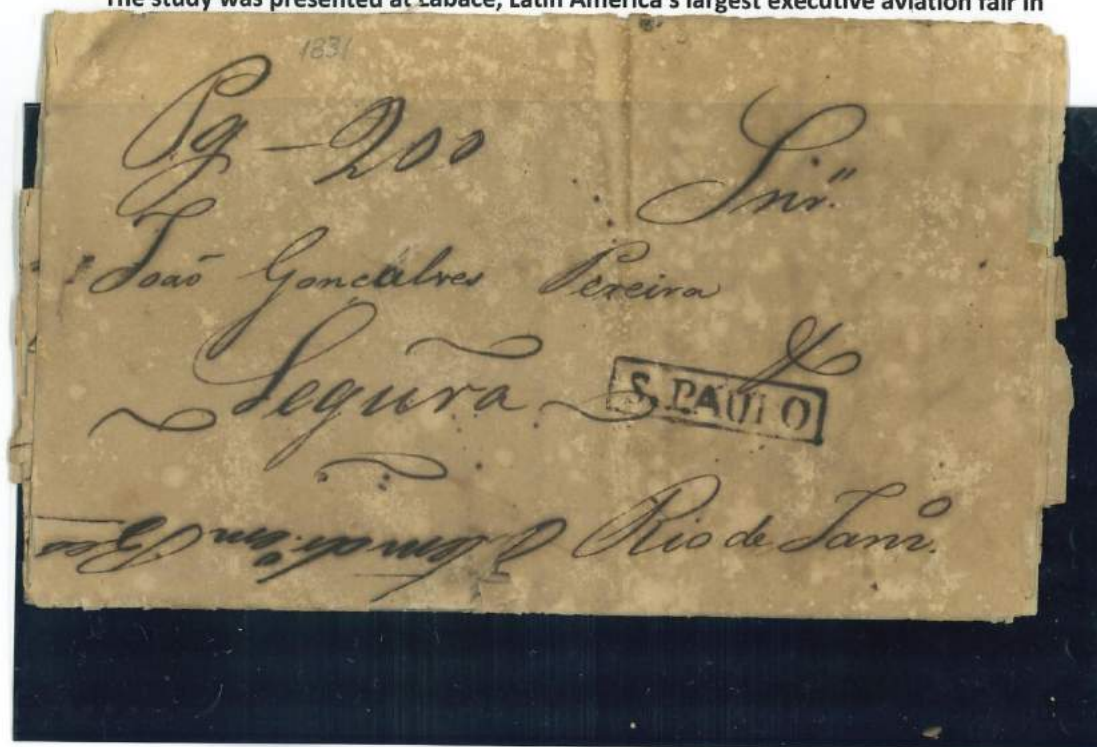 The study was presented at Labace, Latin America's largest executive aviation fair in
1831
Pg - 200
Snr.
João Gonçalves Pereira
Segura
S. PAULO
Rio de Janr.o